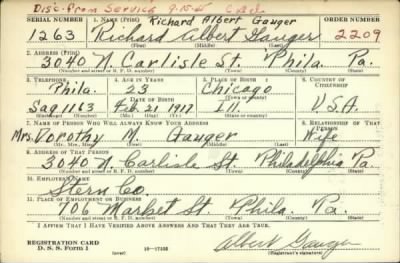 Disc. from Service 9-15-45
SERIAL NUMBER 1. NAME (Print) Richard Albert Gauger ORDER NUMBER
1263 Richard Albert Gauger 2209
(First) (Middle) (Last)
2. ADDRESS (Print)
3040 N. Carlisle St. Phila. Pa.
(Number and street or R. F. D. number) (Town) (County) (State)
3. TELEPHONE 4. AGE IN YEARS 5. PLACE OF BIRTH 6. COUNTRY OF CITIZENSHIP
Phila. 23 Chicago
DATE OF BIRTH (Town or county)
Sag 1163 Feb. 21 1917 Ill U.S.A.
(Exchange) (Number) (Mo.) (Day) (Yr.) (State or country)
7. NAME OF PERSON WHO WILL ALWAYS KNOW YOUR ADDRESS 8. RELATIONSHIP OF THAT PERSON
Mrs. Dorothy M. Gauger Wife
(Mr., Mrs., Miss) (First) (Middle) (Last)
9. ADDRESS OF THAT PERSON
3040 N. Carlisle St. Philadelphia Pa.
(Number and street or R. F. D. number) (Town) (County) (State)
10. EMPLOYER'S NAME
Stern Co.
11. PLACE OF EMPLOYMENT OR BUSINESS
706 Market St. Phila. Pa.
(Number and street or R. F. D. number) (Town) (County) (State)
I AFFIRM THAT I HAVE VERIFIED ABOVE ANSWERS AND THAT THEY ARE TRUE.
REGISTRATION CARD
D. S. S. Form 1 (over) Albert Gauger
(Registrant's signature)